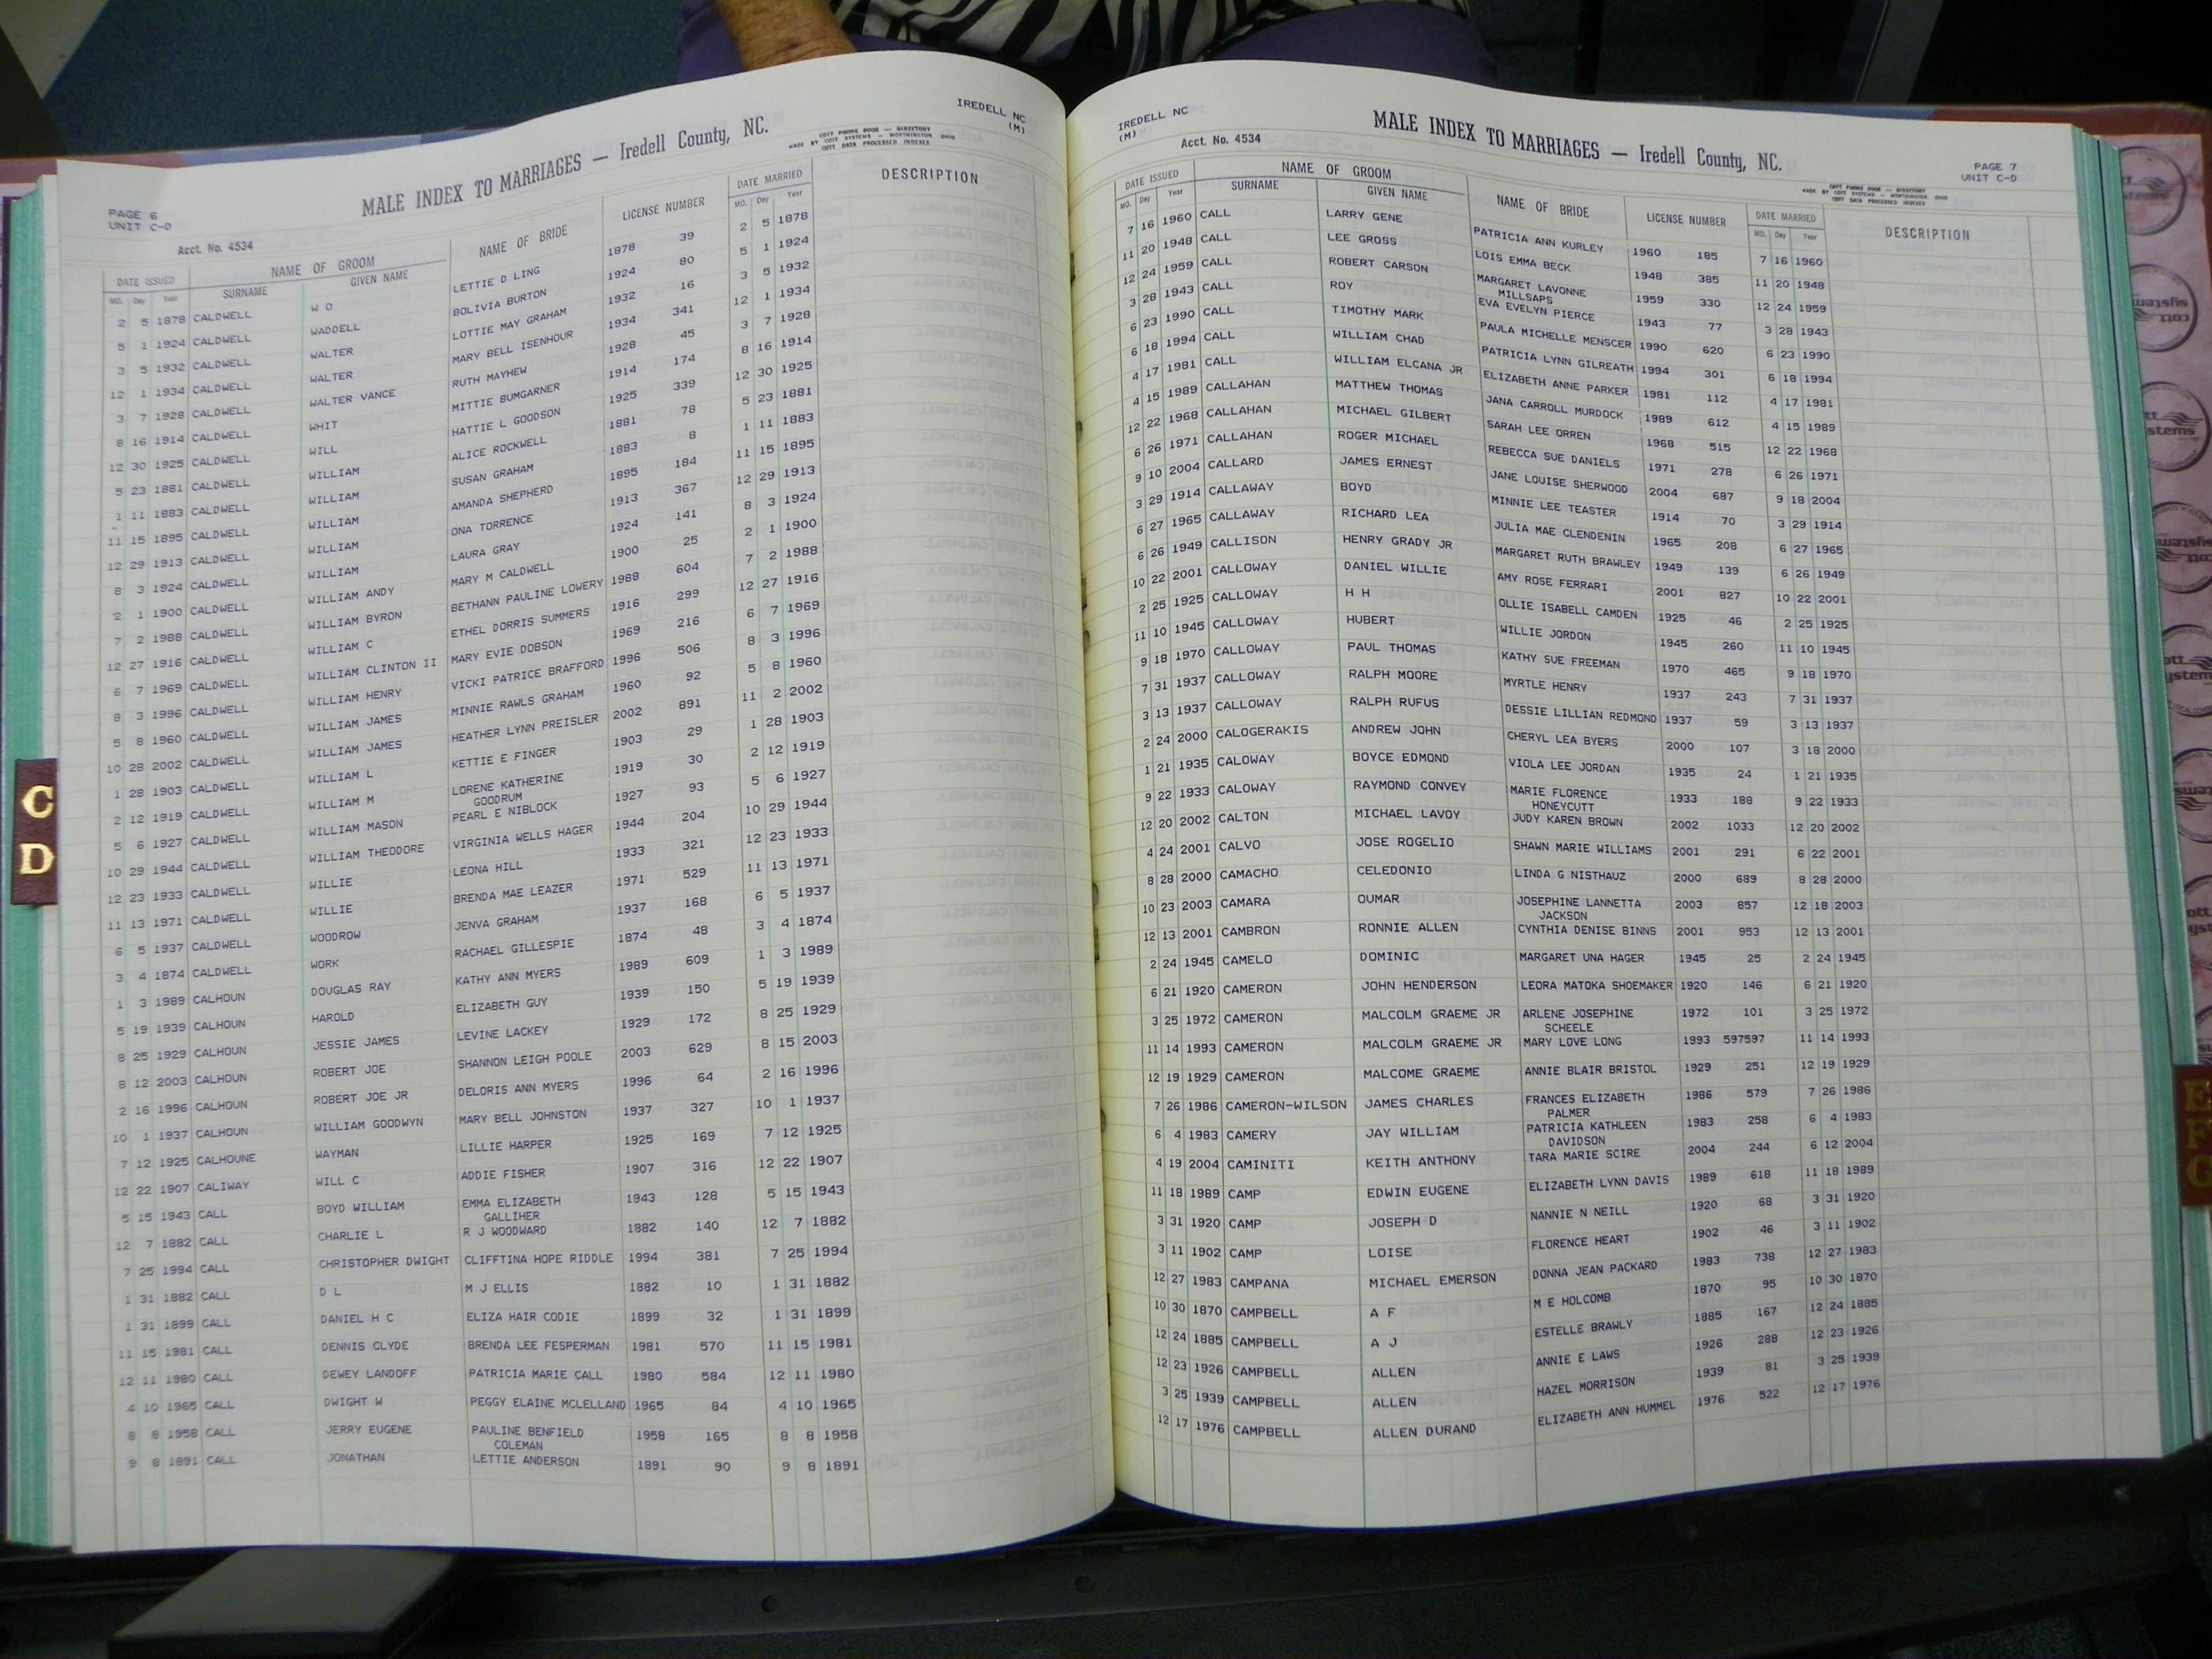 IREDELL NC
(M)
MALE INDEX TO MARRIAGES — Iredell County, NC.
COTT PHONE BOOK — DIRECTORY
MADE BY COTT SYSTEMS — WORTHINGTON, OHIO
COTT DATA PROCESSED INDEXES
PAGE 6
UNIT C-D
Acct. No. 4534
DATE ISSUED NAME OF GROOM NAME OF BRIDE LICENSE NUMBER DATE MARRIED DESCRIPTION
MO. Day Year SURNAME GIVEN NAME MO. Day Year
2 5 1878 CALDWELL W O LETTIE D LING 1878 39 2 5 1878
5 1 1924 CALDWELL WADDELL BOLIVIA BURTON 1924 80 5 1 1924
3 5 1932 CALDWELL WALTER LOTTIE MAY GRAHAM 1932 16 3 5 1932
12 1 1934 CALDWELL WALTER MARY BELL ISENHOUR 1934 341 12 1 1934
3 7 1928 CALDWELL WALTER VANCE RUTH MAYHEW 1928 45 3 7 1928
8 16 1914 CALDWELL WHIT MITTIE BUMGARNER 1914 174 8 16 1914
12 30 1925 CALDWELL WILL HATTIE L GOODSON 1925 339 12 30 1925
5 23 1881 CALDWELL WILLIAM ALICE ROCKWELL 1881 78 5 23 1881
1 11 1883 CALDWELL WILLIAM SUSAN GRAHAM 1883 8 1 11 1883
11 15 1895 CALDWELL WILLIAM AMANDA SHEPHERD 1895 184 11 15 1895
12 29 1913 CALDWELL WILLIAM ONA TORRENCE 1913 367 12 29 1913
8 3 1924 CALDWELL WILLIAM LAURA GRAY 1924 141 8 3 1924
2 1 1900 CALDWELL WILLIAM ANDY MARY M CALDWELL 1900 25 2 1 1900
7 2 1988 CALDWELL WILLIAM BYRON BETHANN PAULINE LOWERY 1988 604 7 2 1988
12 27 1916 CALDWELL WILLIAM C ETHEL DORRIS SUMMERS 1916 299 12 27 1916
6 7 1969 CALDWELL WILLIAM CLINTON II MARY EVIE DOBSON 1969 216 6 7 1969
8 3 1996 CALDWELL WILLIAM HENRY VICKI PATRICE BRAFFORD 1996 506 8 3 1996
5 8 1960 CALDWELL WILLIAM JAMES MINNIE RAWLS GRAHAM 1960 92 5 8 1960
10 28 2002 CALDWELL WILLIAM JAMES HEATHER LYNN PREISLER 2002 891 11 2 2002
1 28 1903 CALDWELL WILLIAM L KETTIE E FINGER 1903 29 1 28 1903
2 12 1919 CALDWELL WILLIAM M LORENE KATHERINE 1919 30 2 12 1919
GOODRUM
5 6 1927 CALDWELL WILLIAM MASON PEARL E NIBLOCK 1927 93 5 6 1927
10 29 1944 CALDWELL WILLIAM THEODORE VIRGINIA WELLS HAGER 1944 204 10 29 1944
12 23 1933 CALDWELL WILLIE LEONA HILL 1933 321 12 23 1933
11 13 1971 CALDWELL WILLIE BRENDA MAE LEAZER 1971 529 11 13 1971
6 5 1937 CALDWELL WOODROW JENVA GRAHAM 1937 168 6 5 1937
3 4 1874 CALDWELL WORK RACHAEL GILLESPIE 1874 48 3 4 1874
1 3 1989 CALHOUN DOUGLAS RAY KATHY ANN MYERS 1989 609 1 3 1989
5 19 1939 CALHOUN HAROLD ELIZABETH GUY 1939 150 5 19 1939
8 25 1929 CALHOUN JESSIE JAMES LEVINE LACKEY 1929 172 8 25 1929
8 12 2003 CALHOUN ROBERT JOE SHANNON LEIGH POOLE 2003 629 8 15 2003
2 16 1996 CALHOUN ROBERT JOE JR DELORIS ANN MYERS 1996 64 2 16 1996
10 1 1937 CALHOUN WILLIAM GOODWYN MARY BELL JOHNSTON 1937 327 10 1 1937
7 12 1925 CALHOUNE WAYMAN LILLIE HARPER 1925 169 7 12 1925
12 22 1907 CALIWAY WILL C ADDIE FISHER 1907 316 12 22 1907
5 15 1943 CALL BOYD WILLIAM EMMA ELIZABETH 1943 128 5 15 1943
GALLIHER
12 7 1882 CALL CHARLIE L R J WOODWARD 1882 140 12 7 1882
7 25 1994 CALL CHRISTOPHER DWIGHT CLIFFTINA HOPE RIDDLE 1994 381 7 25 1994
1 31 1882 CALL D L M J ELLIS 1882 10 1 31 1882
1 31 1899 CALL DANIEL H C ELIZA HAIR CODIE 1899 32 1 31 1899
11 15 1981 CALL DENNIS CLYDE BRENDA LEE FESPERMAN 1981 570 11 15 1981
12 11 1980 CALL DEWEY LANDOFF PATRICIA MARIE CALL 1980 584 12 11 1980
4 10 1965 CALL DWIGHT W PEGGY ELAINE MCLELLAND 1965 84 4 10 1965
8 8 1958 CALL JERRY EUGENE PAULINE BENFIELD 1958 165 8 8 1958
COLEMAN
9 8 1891 CALL JONATHAN LETTIE ANDERSON 1891 90 9 8 1891
C
D
IREDELL NC
(M)
MALE INDEX TO MARRIAGES — Iredell County, NC.
Acct. No. 4534
PAGE 7
UNIT C-D
COTT PHONE BOOK — DIRECTORY
MADE BY COTT SYSTEMS — WORTHINGTON, OHIO
COTT DATA PROCESSED INDEXES
DATE ISSUED NAME OF GROOM NAME OF BRIDE LICENSE NUMBER DATE MARRIED DESCRIPTION
MO. Day Year SURNAME GIVEN NAME MO. Day Year
7 16 1960 CALL LARRY GENE PATRICIA ANN KURLEY 1960 185 7 16 1960
11 20 1948 CALL LEE GROSS LOIS EMMA BECK 1948 385 11 20 1948
12 24 1959 CALL ROBERT CARSON MARGARET LAVONNE 1959 330 12 24 1959
MILLSAPS
3 28 1943 CALL ROY EVA EVELYN PIERCE 1943 77 3 28 1943
6 23 1990 CALL TIMOTHY MARK PAULA MICHELLE MENSCER 1990 620 6 23 1990
6 18 1994 CALL WILLIAM CHAD PATRICIA LYNN GILREATH 1994 301 6 18 1994
4 17 1981 CALL WILLIAM ELCANA JR ELIZABETH ANNE PARKER 1981 112 4 17 1981
4 15 1989 CALLAHAN MATTHEW THOMAS JANA CARROLL MURDOCK 1989 612 4 15 1989
12 22 1968 CALLAHAN MICHAEL GILBERT SARAH LEE ORREN 1968 515 12 22 1968
6 26 1971 CALLAHAN ROGER MICHAEL REBECCA SUE DANIELS 1971 278 6 26 1971
9 10 2004 CALLARD JAMES ERNEST JANE LOUISE SHERWOOD 2004 687 9 18 2004
3 29 1914 CALLAWAY BOYD MINNIE LEE TEASTER 1914 70 3 29 1914
6 27 1965 CALLAWAY RICHARD LEA JULIA MAE CLENDENIN 1965 208 6 27 1965
6 26 1949 CALLISON HENRY GRADY JR MARGARET RUTH BRAWLEY 1949 139 6 26 1949
10 22 2001 CALLOWAY DANIEL WILLIE AMY ROSE FERRARI 2001 827 10 22 2001
2 25 1925 CALLOWAY H H OLLIE ISABELL CAMDEN 1925 46 2 25 1925
11 10 1945 CALLOWAY HUBERT WILLIE JORDON 1945 260 11 10 1945
9 18 1970 CALLOWAY PAUL THOMAS KATHY SUE FREEMAN 1970 465 9 18 1970
7 31 1937 CALLOWAY RALPH MOORE MYRTLE HENRY 1937 243 7 31 1937
3 13 1937 CALLOWAY RALPH RUFUS DESSIE LILLIAN REDMOND 1937 59 3 13 1937
2 24 2000 CALOGERAKIS ANDREW JOHN CHERYL LEA BYERS 2000 107 3 18 2000
1 21 1935 CALOWAY BOYCE EDMOND VIOLA LEE JORDAN 1935 24 1 21 1935
9 22 1933 CALOWAY RAYMOND CONVEY MARIE FLORENCE 1933 188 9 22 1933
HONEYCUTT
12 20 2002 CALTON MICHAEL LAVOY JUDY KAREN BROWN 2002 1033 12 20 2002
4 24 2001 CALVO JOSE ROGELIO SHAWN MARIE WILLIAMS 2001 291 6 22 2001
8 28 2000 CAMACHO CELEDONIO LINDA G NISTHAUZ 2000 689 8 28 2000
10 23 2003 CAMARA OUMAR JOSEPHINE LANNETTA 2003 857 12 18 2003
JACKSON
12 13 2001 CAMBRON RONNIE ALLEN CYNTHIA DENISE BINNS 2001 953 12 13 2001
2 24 1945 CAMELO DOMINIC MARGARET UNA HAGER 1945 25 2 24 1945
6 21 1920 CAMERON JOHN HENDERSON LEORA MATOKA SHOEMAKER 1920 146 6 21 1920
3 25 1972 CAMERON MALCOLM GRAEME JR ARLENE JOSEPHINE 1972 101 3 25 1972
SCHEELE
11 14 1993 CAMERON MALCOLM GRAEME JR MARY LOVE LONG 1993 597597 11 14 1993
12 19 1929 CAMERON MALCOME GRAEME ANNIE BLAIR BRISTOL 1929 251 12 19 1929
7 26 1986 CAMERON-WILSON JAMES CHARLES FRANCES ELIZABETH 1986 579 7 26 1986
PALMER
6 4 1983 CAMERY JAY WILLIAM PATRICIA KATHLEEN 1983 258 6 4 1983
DAVIDSON
4 19 2004 CAMINITI KEITH ANTHONY TARA MARIE SCIRE 2004 244 6 12 2004
11 18 1989 CAMP EDWIN EUGENE ELIZABETH LYNN DAVIS 1989 618 11 18 1989
3 31 1920 CAMP JOSEPH D NANNIE N NEILL 1920 68 3 31 1920
3 11 1902 CAMP LOISE FLORENCE HEART 1902 46 3 11 1902
12 27 1983 CAMPANA MICHAEL EMERSON DONNA JEAN PACKARD 1983 738 12 27 1983
10 30 1870 CAMPBELL A F M E HOLCOMB 1870 95 10 30 1870
12 24 1885 CAMPBELL A J ESTELLE BRAWLY 1885 167 12 24 1885
12 23 1926 CAMPBELL ALLEN ANNIE E LAWS 1926 288 12 23 1926
3 25 1939 CAMPBELL ALLEN HAZEL MORRISON 1939 81 3 25 1939
12 17 1976 CAMPBELL ALLEN DURAND ELIZABETH ANN HUMMEL 1976 522 12 17 1976